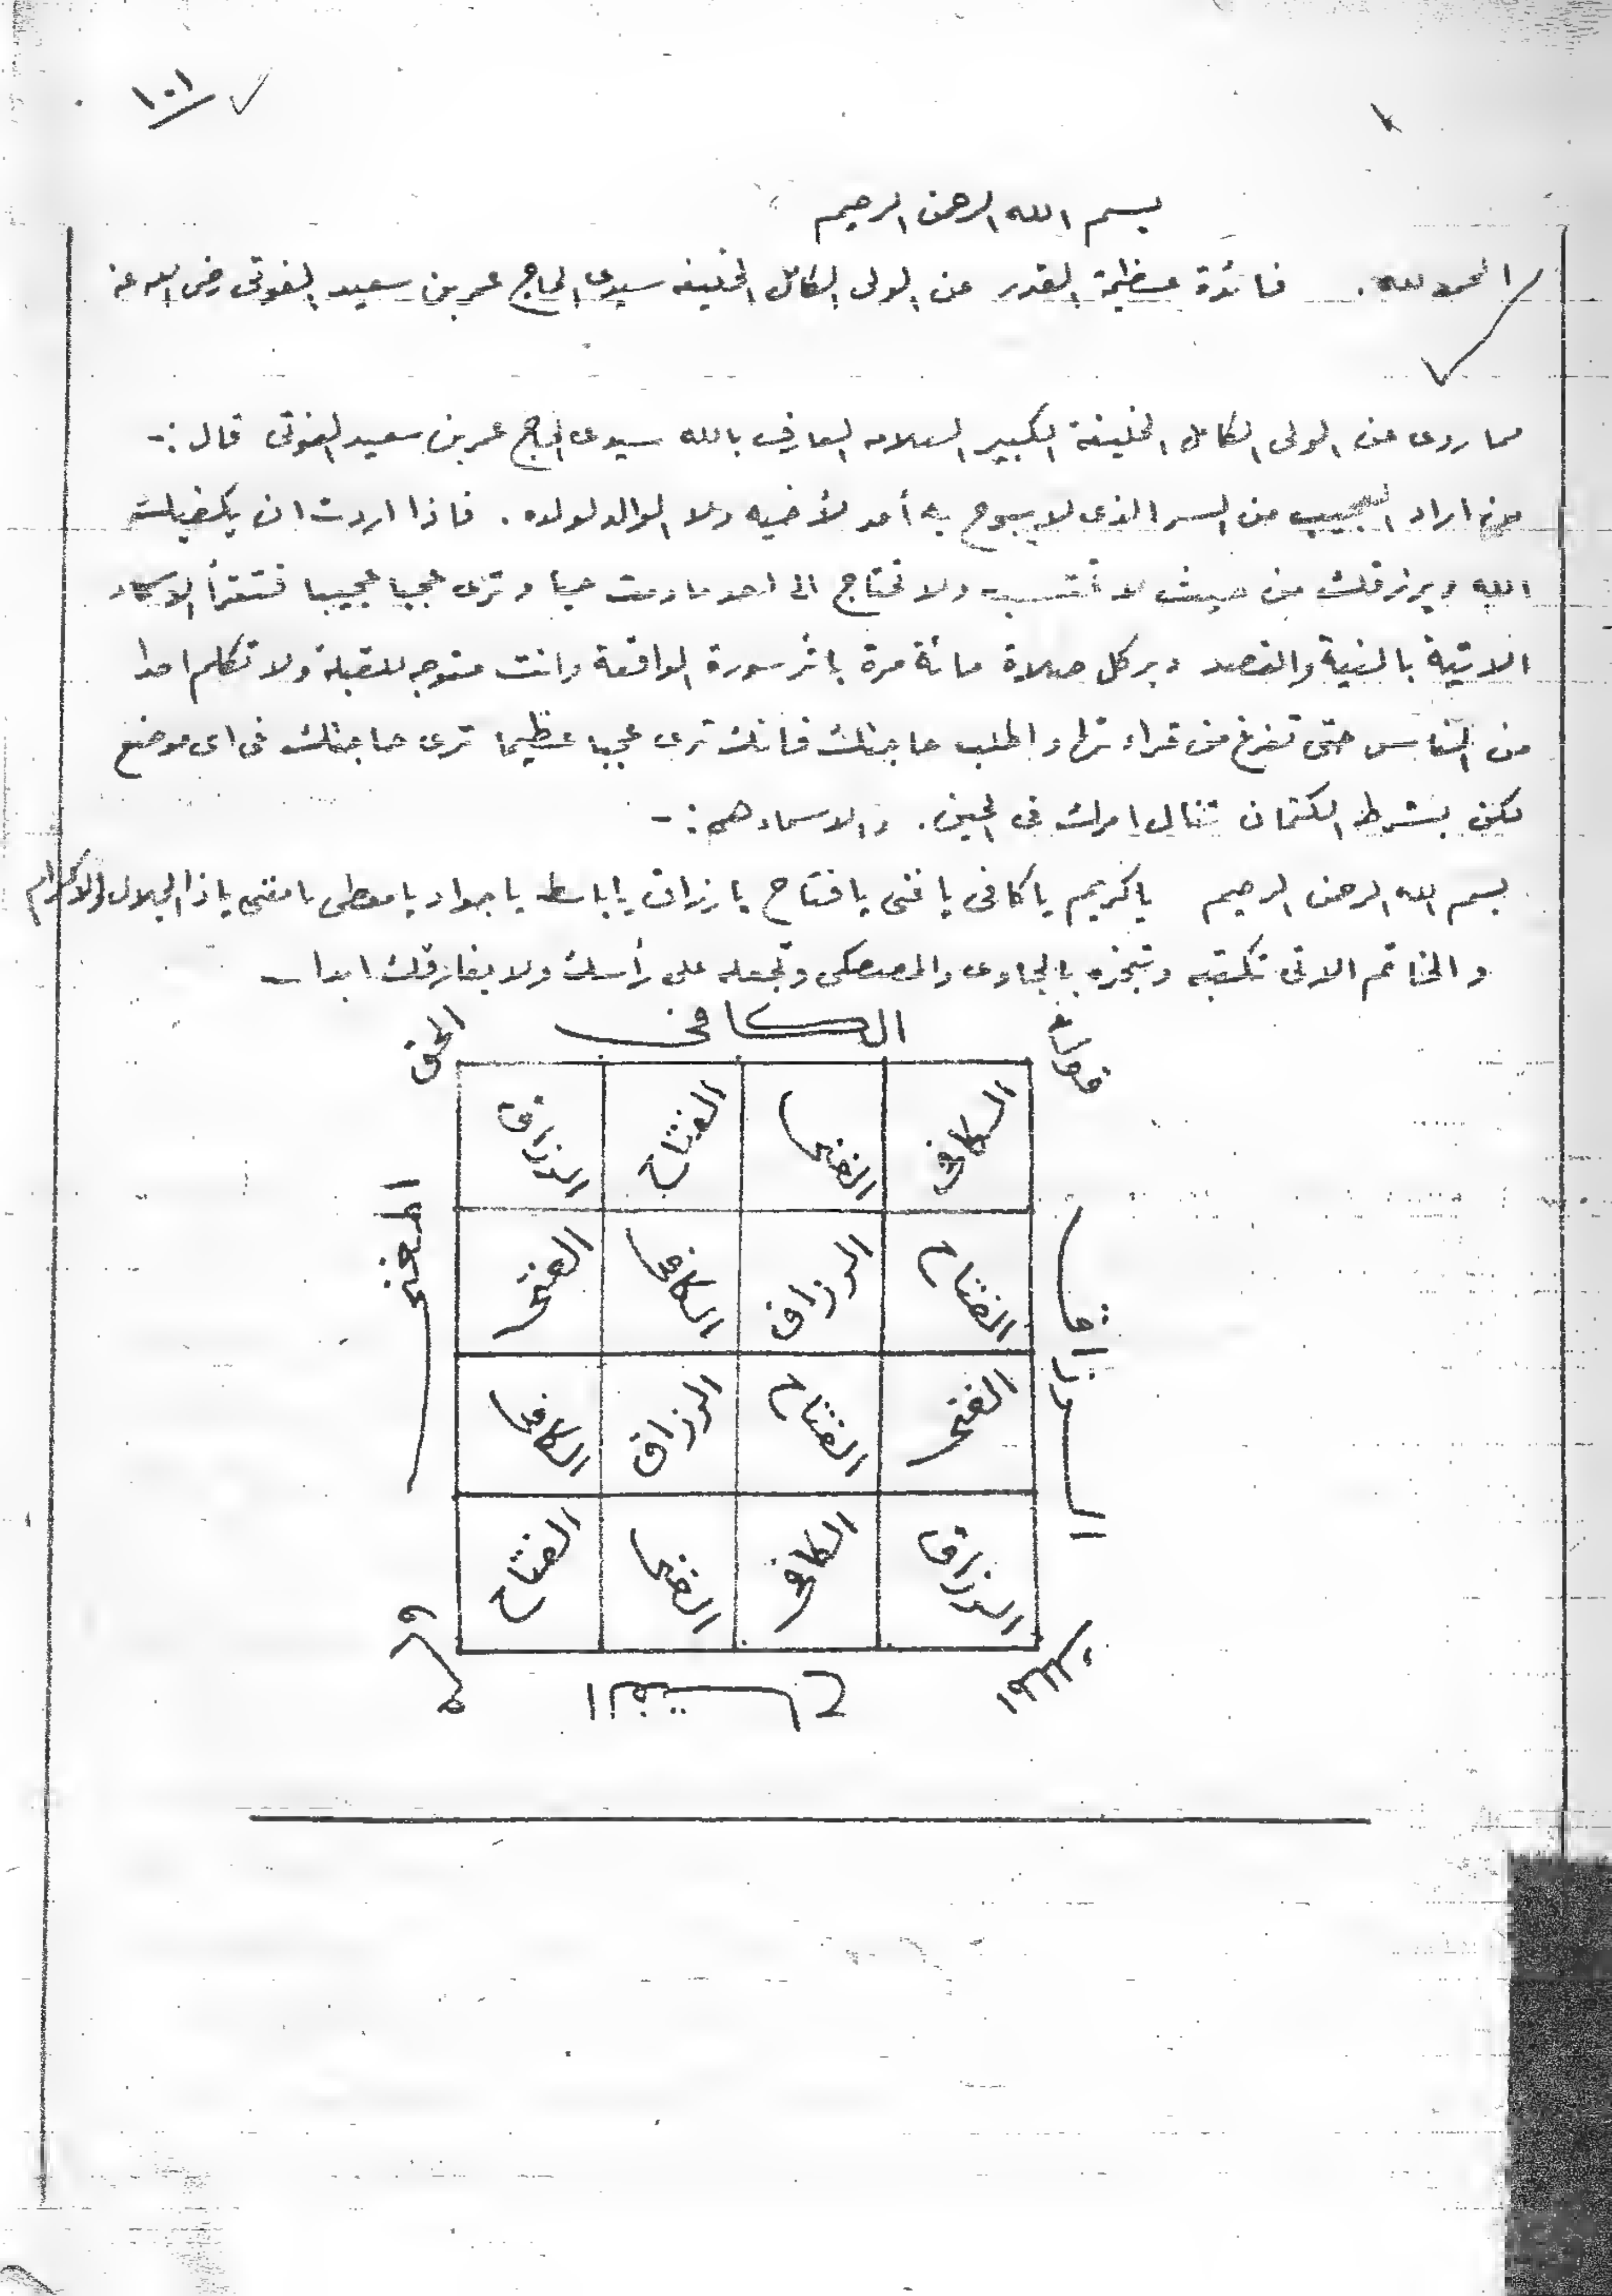 ١٠١
بسم الله الرحمن الرحيم
الحمد لله. فائدة عظيمة القدر عن الولى الكامل الخليفه سيدى الحاج عمر بن سعيد الفوتى رضى الله عنه
مما روى عن الولى الكامل الخليفة الكبير العلامه العارف بالله سيدى الحاج عمر بن سعيد الفوتى قال :-
من اراد العجيب من السر الذى لا يبوح به أحد لأخيه ولا الوالد لولده . فاذا اردت ان يكفيك
الله ويرزقك من حيث لا تحتسب ولا تحتاج الى احد ما دمت حيا وترى عجبا عجيبا فتقرأ الاسماء
الاتية بالنية والقصد دبر كل صلاة مائة مرة باثر سورة الواقعة وانت متوجه للقبلة ولا تكلم احدا
من الناس حتى تفرغ من قراءتها واطلب حاجتك فانك ترى عجبا عظيما ترى حاجتك فى اى موضع
لكن بشرط الكتمان تنال امرك فى الحين . والاسماء هم :-
بسم الله الرحمن الرحيم ياكريم ياكافى ياغنى يافتاح يارزاق ياباسط ياجواد يامعطى يامغنى ياذا الجلال والاكرام
والخاتم الاتى تكتبه وتبخره بالجاوى والمصطكى وتجعله على رأسك ولا يفارقك ابدا
قوله الكافى الحق
الكافى الغنى الفتاح الرزاق
الفتاح الرزاق الكافى الغنى
الغنى الفتاح الرزاق الكافى
الرزاق الكافى الغنى الفتاح
الرزاق
المغنى
الملك الفتاح وله